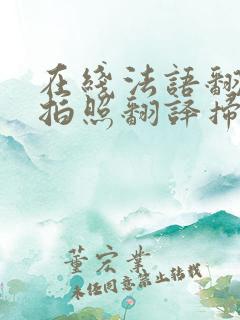 在綫法語翻
拍照翻譯掃
董宏業
未经同意禁止转载